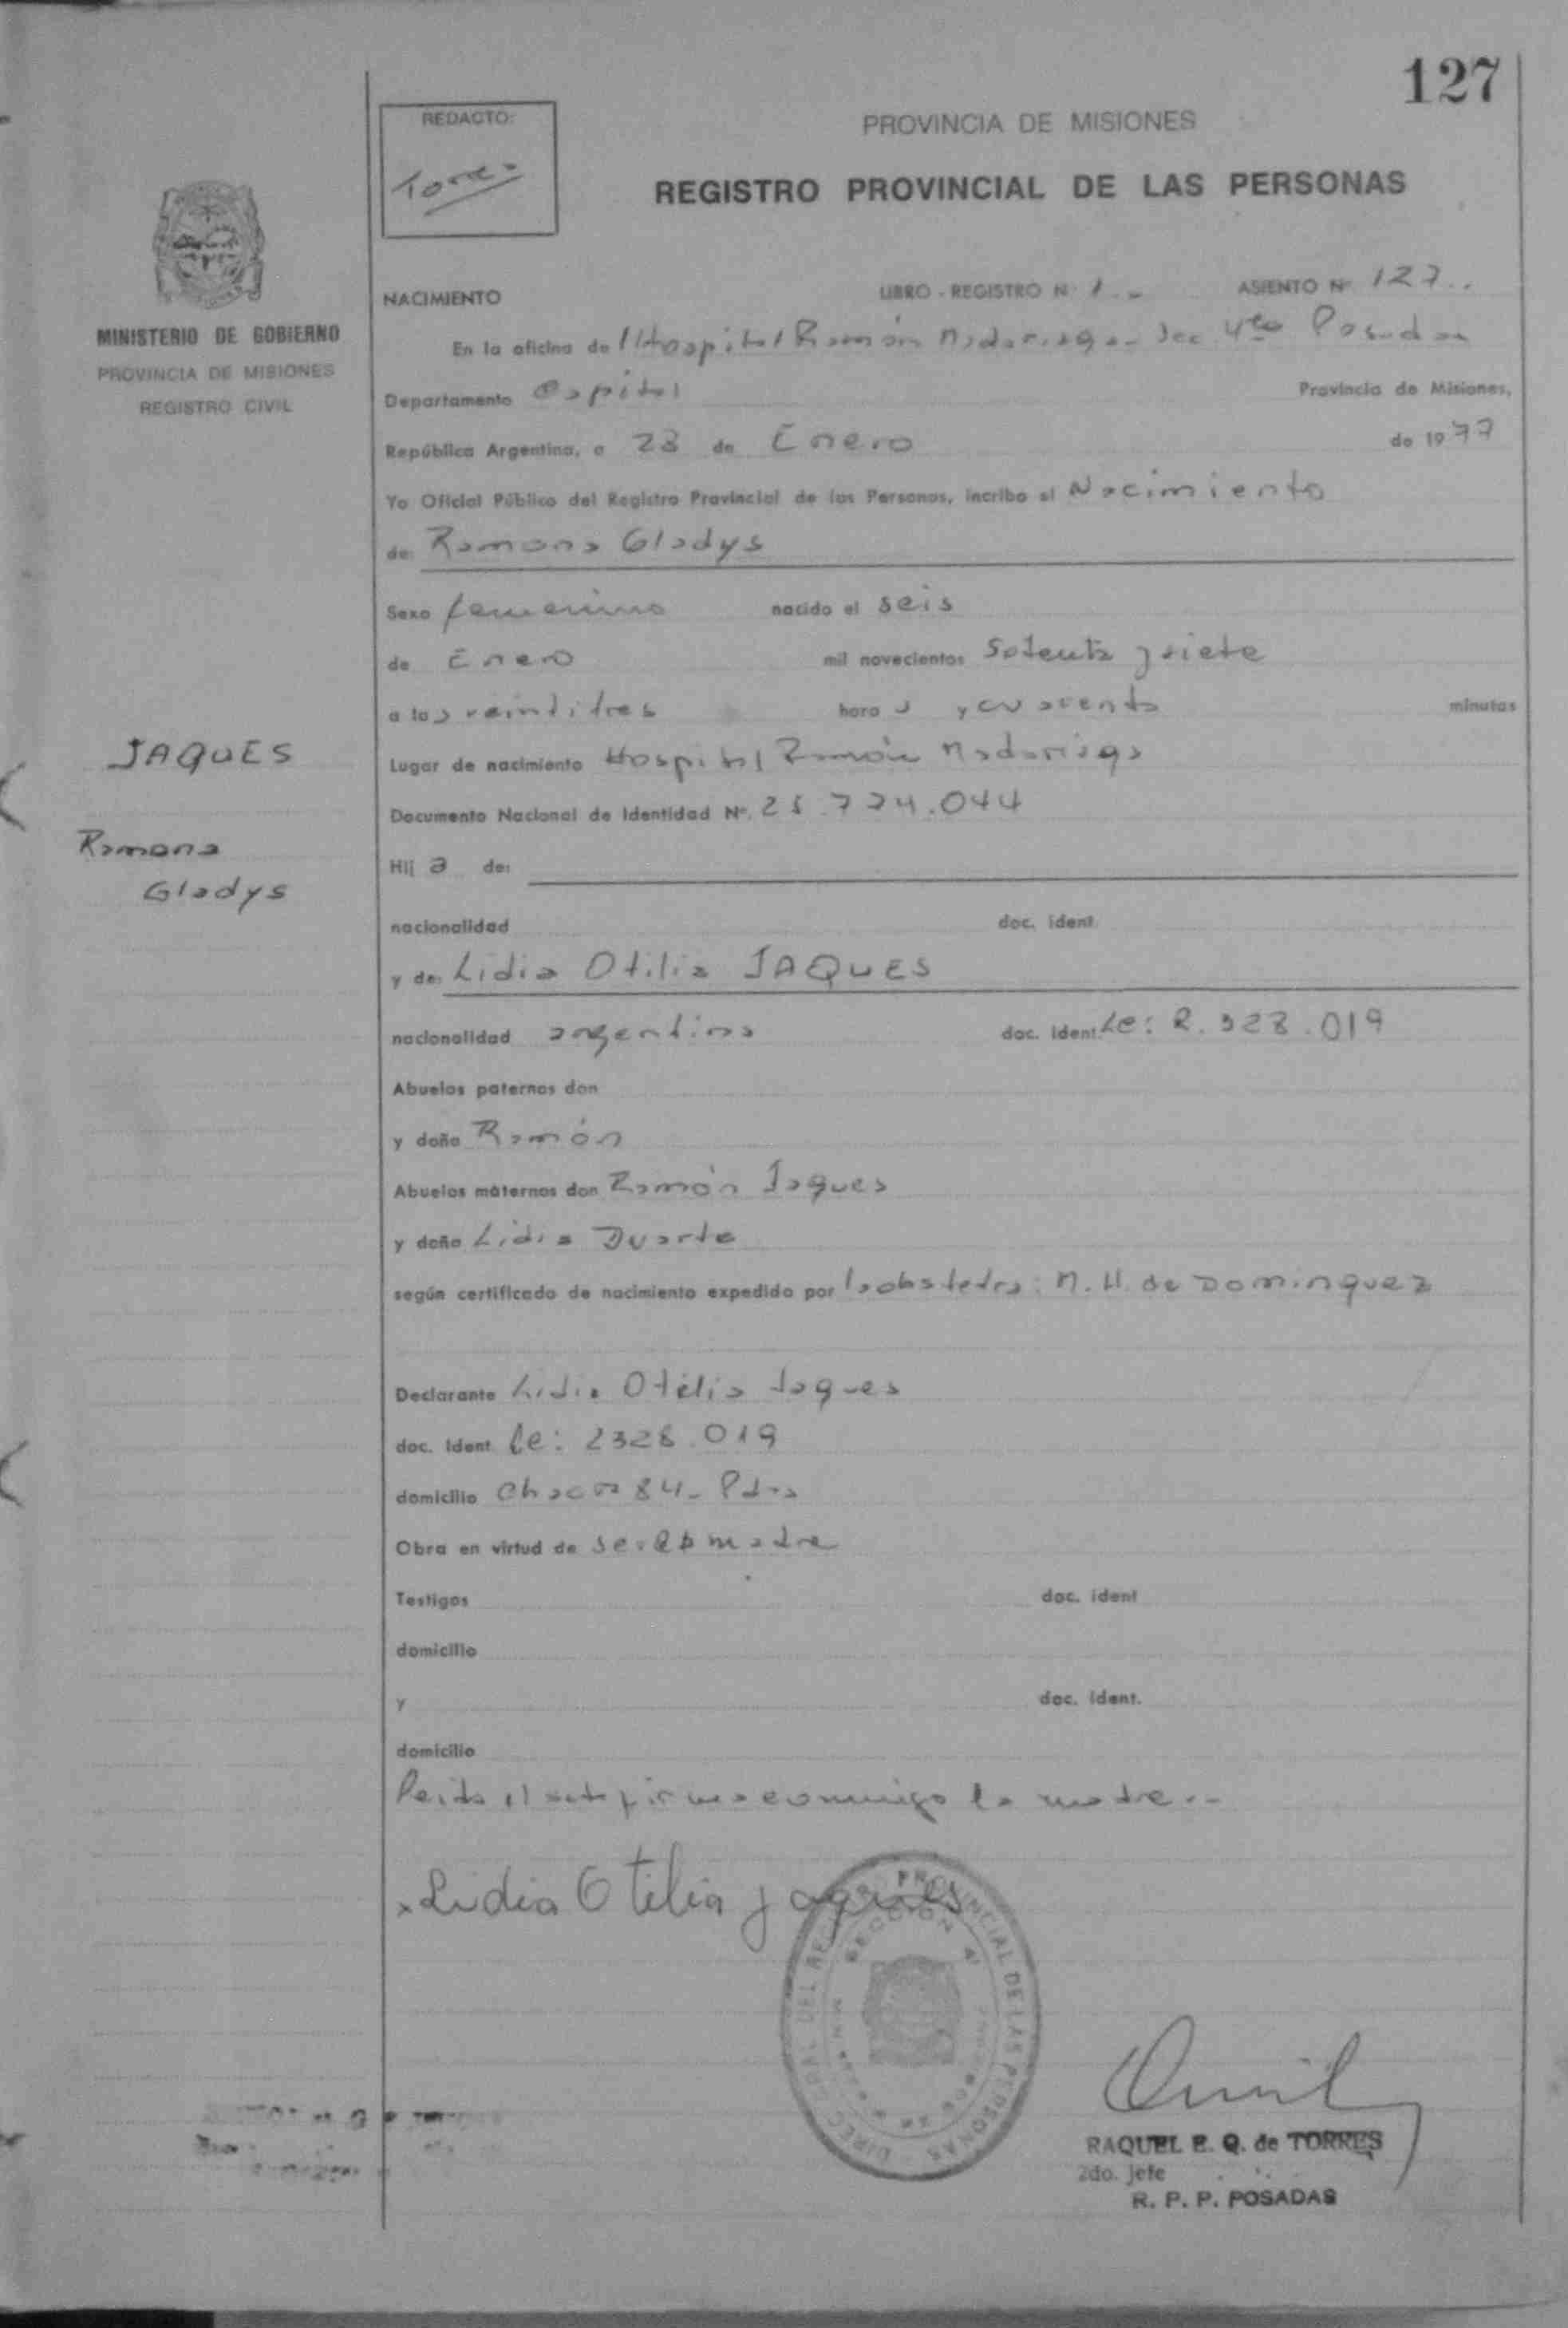 127
REDACTO:
Torres
PROVINCIA DE MISIONES
REGISTRO PROVINCIAL DE LAS PERSONAS
MINISTERIO DE GOBIERNO
PROVINCIA DE MISIONES
REGISTRO CIVIL
NACIMIENTO LIBRO - REGISTRO Nº 1 .- ASIENTO Nº 127..
En la oficina de Hospital Ramón Madariaga - Sec 4ta Posadas
Departamento Capital Provincia de Misiones,
República Argentina, a 28 de Enero de 1977
Yo Oficial Público del Registro Provincial de las Personas, incribo el Nacimiento
de: Ramona Gladys
Sexo femenino nacido el seis
de Enero mil novecientos setenta y siete
a las veintitres hora s y cuarenta minutos
Lugar de nacimiento Hospital Ramón Madariaga
Documento Nacional de Identidad Nº. 25.774.044
JAQUES
Ramona
Gladys
Hij a de:
nacionalidad doc. ident.
y de: Lidia Otilia JAQUES
nacionalidad argentina doc. ident. Le: 2.328.019
Abuelos paternos don
y doña Ramón
Abuelos maternos don Ramón Jaques
y doña Lidia Duarte
según certificado de nacimiento expedido por la obstetra: M. H. de Dominguez
Declarante Lidia Otilia Jaques
doc. Ident. Le: 2328.019
domicilio Chacra 84 - Pdas
Obra en virtud de ser la madre
Testigos doc. ident
domicilio
y doc. ident.
domicilio
Leida el acta firma conmigo la madre.-
x Lidia Otilia Jaques
DIREC. GRAL DEL REG. PROVINCIAL DE LAS PERSONAS
SECCION 4ª
RAQUEL E. Q. de TORRES
2do. Jefe
R. P. P. POSADAS